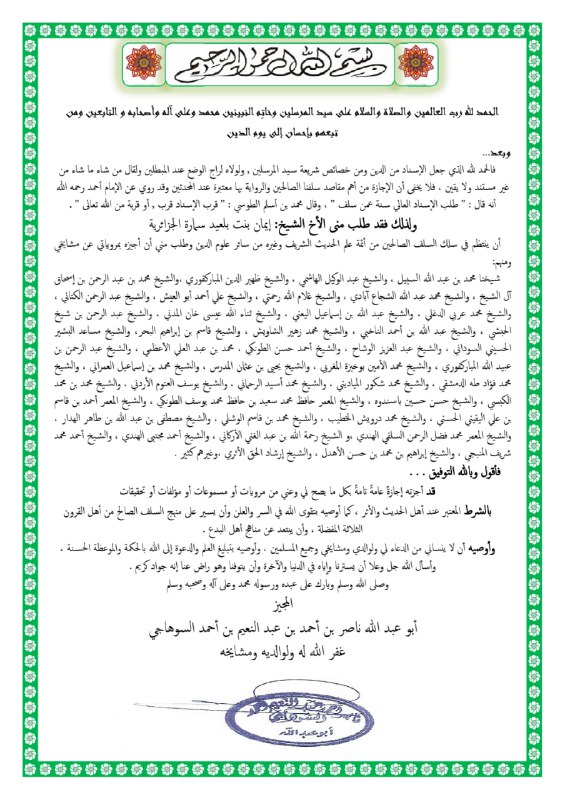 بسم الله الرحمن الرحيم
الحمد لله رب العالمين والصلاة والسلام على سيد المرسلين وخاتم النبيين محمد وعلى آله وأصحابه و التابعين ومن
تبعهم بإحسان إلى يوم الدين
وبعد...
فالحمد لله الذي جعل الإسناد من الدين ومن خصائص شريعة سيد المرسلين , ولولاه لراج الوضع عند المبطلين ولقال من شاء ما شاء من
غير مستند ولا يقين , فلا يخفى أن الإجازة من أهم مقاصد سلفنا الصالحين والرواية بها معتبرة عند المحدثين وقد روي عن الإمام أحمد رحمه الله
أنه قال : " طلب الإسناد العالي سنة عمن سلف " , وقال محمد بن أسلم الطوسي : " قرب الإسناد قرب , أو قربة من الله تعالى " .
ولذلك فقد طلب مني الأخ الشيخ: إيمان بنت بلعيد سمارة الجزائرية
أن ينتظم في سلك السلف الصالحين من أئمة علم الحديث الشريف وغيره من سائر علوم الدين وطلب مني أن أجيزه بمروياتي عن مشايخي
ومنهم:
شيخنا محمد بن عبد الله السبيل , والشيخ عبد الوكيل الهاشمي , والشيخ ظهير الدين المباركفوري ,والشيخ محمد بن عبد الرحمن بن إسحاق
آل الشيخ , والشيخ محمد عبد الله الشجاع آبادي , والشيخ غلام الله رحمتي , والشيخ علي أحمد أبو العيش , والشيخ عبد الرحمن الكتاني ,
والشيخ محمد عربي الدغلي , والشيخ عبد الله بن إسماعيل اليعني , والشيخ ثناء الله عيسى خان المدني , والشيخ عبد الرحمن بن شيخ
الحبشي , والشيخ عبد الله بن أحمد الناخبي , والشيخ محمد زهير الشاويش , والشيخ قاسم بن إبراهيم البحر، والشيخ مساعد البشير
الحسيني السوداني , والشيخ عبد العزيز الوشاح , والشيخ أحمد حسن الطوكي . محمد بن عبد العلي الأعظمي , والشيخ عبد الرحمن بن
عبيد الله المباركفوري , والشيخ محمد الأمين بوخبزة المغربي , والشيخ يحيى بن عثمان المدرس , والشيخ محمد بن إسماعيل العمراني , والشيخ
محمد فؤاد طه الدمشقي , والشيخ محمد شكور المياديني , والشيخ محمد أسيد الرحماني , والشيخ يوسف العتوم الأردني , والشيخ محمد بن محمد
الكبسي , والشيخ حسن حسين باسندوه , والشيخ المعمر حافظ محمد سعيد بن حافظ محمد يوسف الطوكي , والشيخ المعمر أحمد بن قاسم
بن علي اليقيني الحسني , والشيخ محمد درويش الخطيب , والشيخ محمد بن قاسم الوشلي , والشيخ مصطفى بن عبد الله بن طاهر الهدار ,
والشيخ المعمر محمد فضل الرحمن السلفي الهندي ,و الشيخ رحمة الله بن عبد الغني الأركاني , والشيخ أحمد مجتبى الهندي , والشيخ أحمد محمد
شريف المنبجي , والشيخ إبراهيم بن محمد بن حسن الأهدل , والشيخ إرشاد الحق الأثري ,وغيرهم كثير .
فأقول وبالله التوفيق . . .
قد أجزته إجازةً عامةً تامةً بكل ما يصح لي وعني من مرويات أو مسموعات أو مؤلفات أو تحقيقات
بالشرط المعتبر عند أهل الحديث والأثر , كما أوصيه بتقوى الله في السر والعلن وأن يسير على منهج السلف الصالح من أهل القرون
الثلاثة المفضلة , وأن يبتعد عن مناهج أهل البدع .
وأوصيه أن لا ينساني من الدعاء لي ولوالدي ومشايخي وجميع المسلمين . وأوصيه بتبليغ العلم والدعوة إلى الله بالحكمة والموعظة الحسنة .
وأسأل الله جل وعلا أن يسترنا وإياه في الدنيا والآخرة وأن يتوفنا وهو راض عنا إنه جواد كريم .
وصلى الله وسلم وبارك على عبده ورسوله محمد وعلى آله وصحبه وسلم
المجيز
أبو عبد الله ناصر بن أحمد بن عبد النعيم بن أحمد السوهاجي
غفر الله له ولوالديه ومشايخه
ناصر أحمد عبد النعيم أحمد
السوهاجي
أبو عبد الله